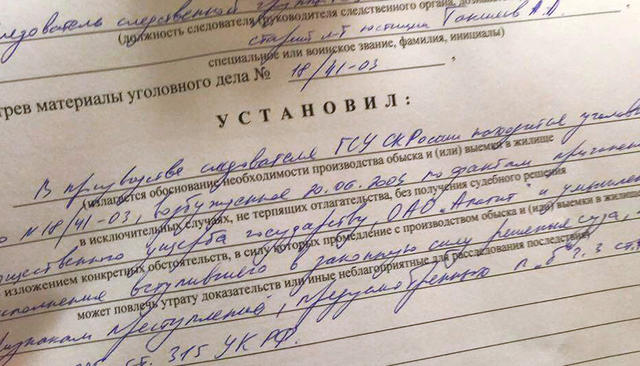 следователь следственной группы
(должность следователя (руководителя следственного органа, дознавателя
старший л-т юстиции А.А.
специальное или воинское звание, фамилия, инициалы)
материалы уголовного дела № 18/41-03
УСТАНОВИЛ:
В производстве следователя ГСУ СК России находится уголовное
(излагается обоснование необходимости производства обыска и (или) выемки в жилище
№ 18/41-03, возбужденное 20.06.2005 по фактам причинения
в исключительных случаях, не терпящих отлагательства, без получения судебного решения
ущерба государству, ОАО „Апатит" и
изложением конкретных обстоятельств, в силу которых промедление с производством обыска и (или) выемки в жилище
вступившего в законную силу решения суда,
может повлечь утрату доказательств или иные неблагоприятные для расследования последствия)
признакам преступлений, предусмотренных п. „б" ч. 3 ст.
ст. 315 УК РФ.